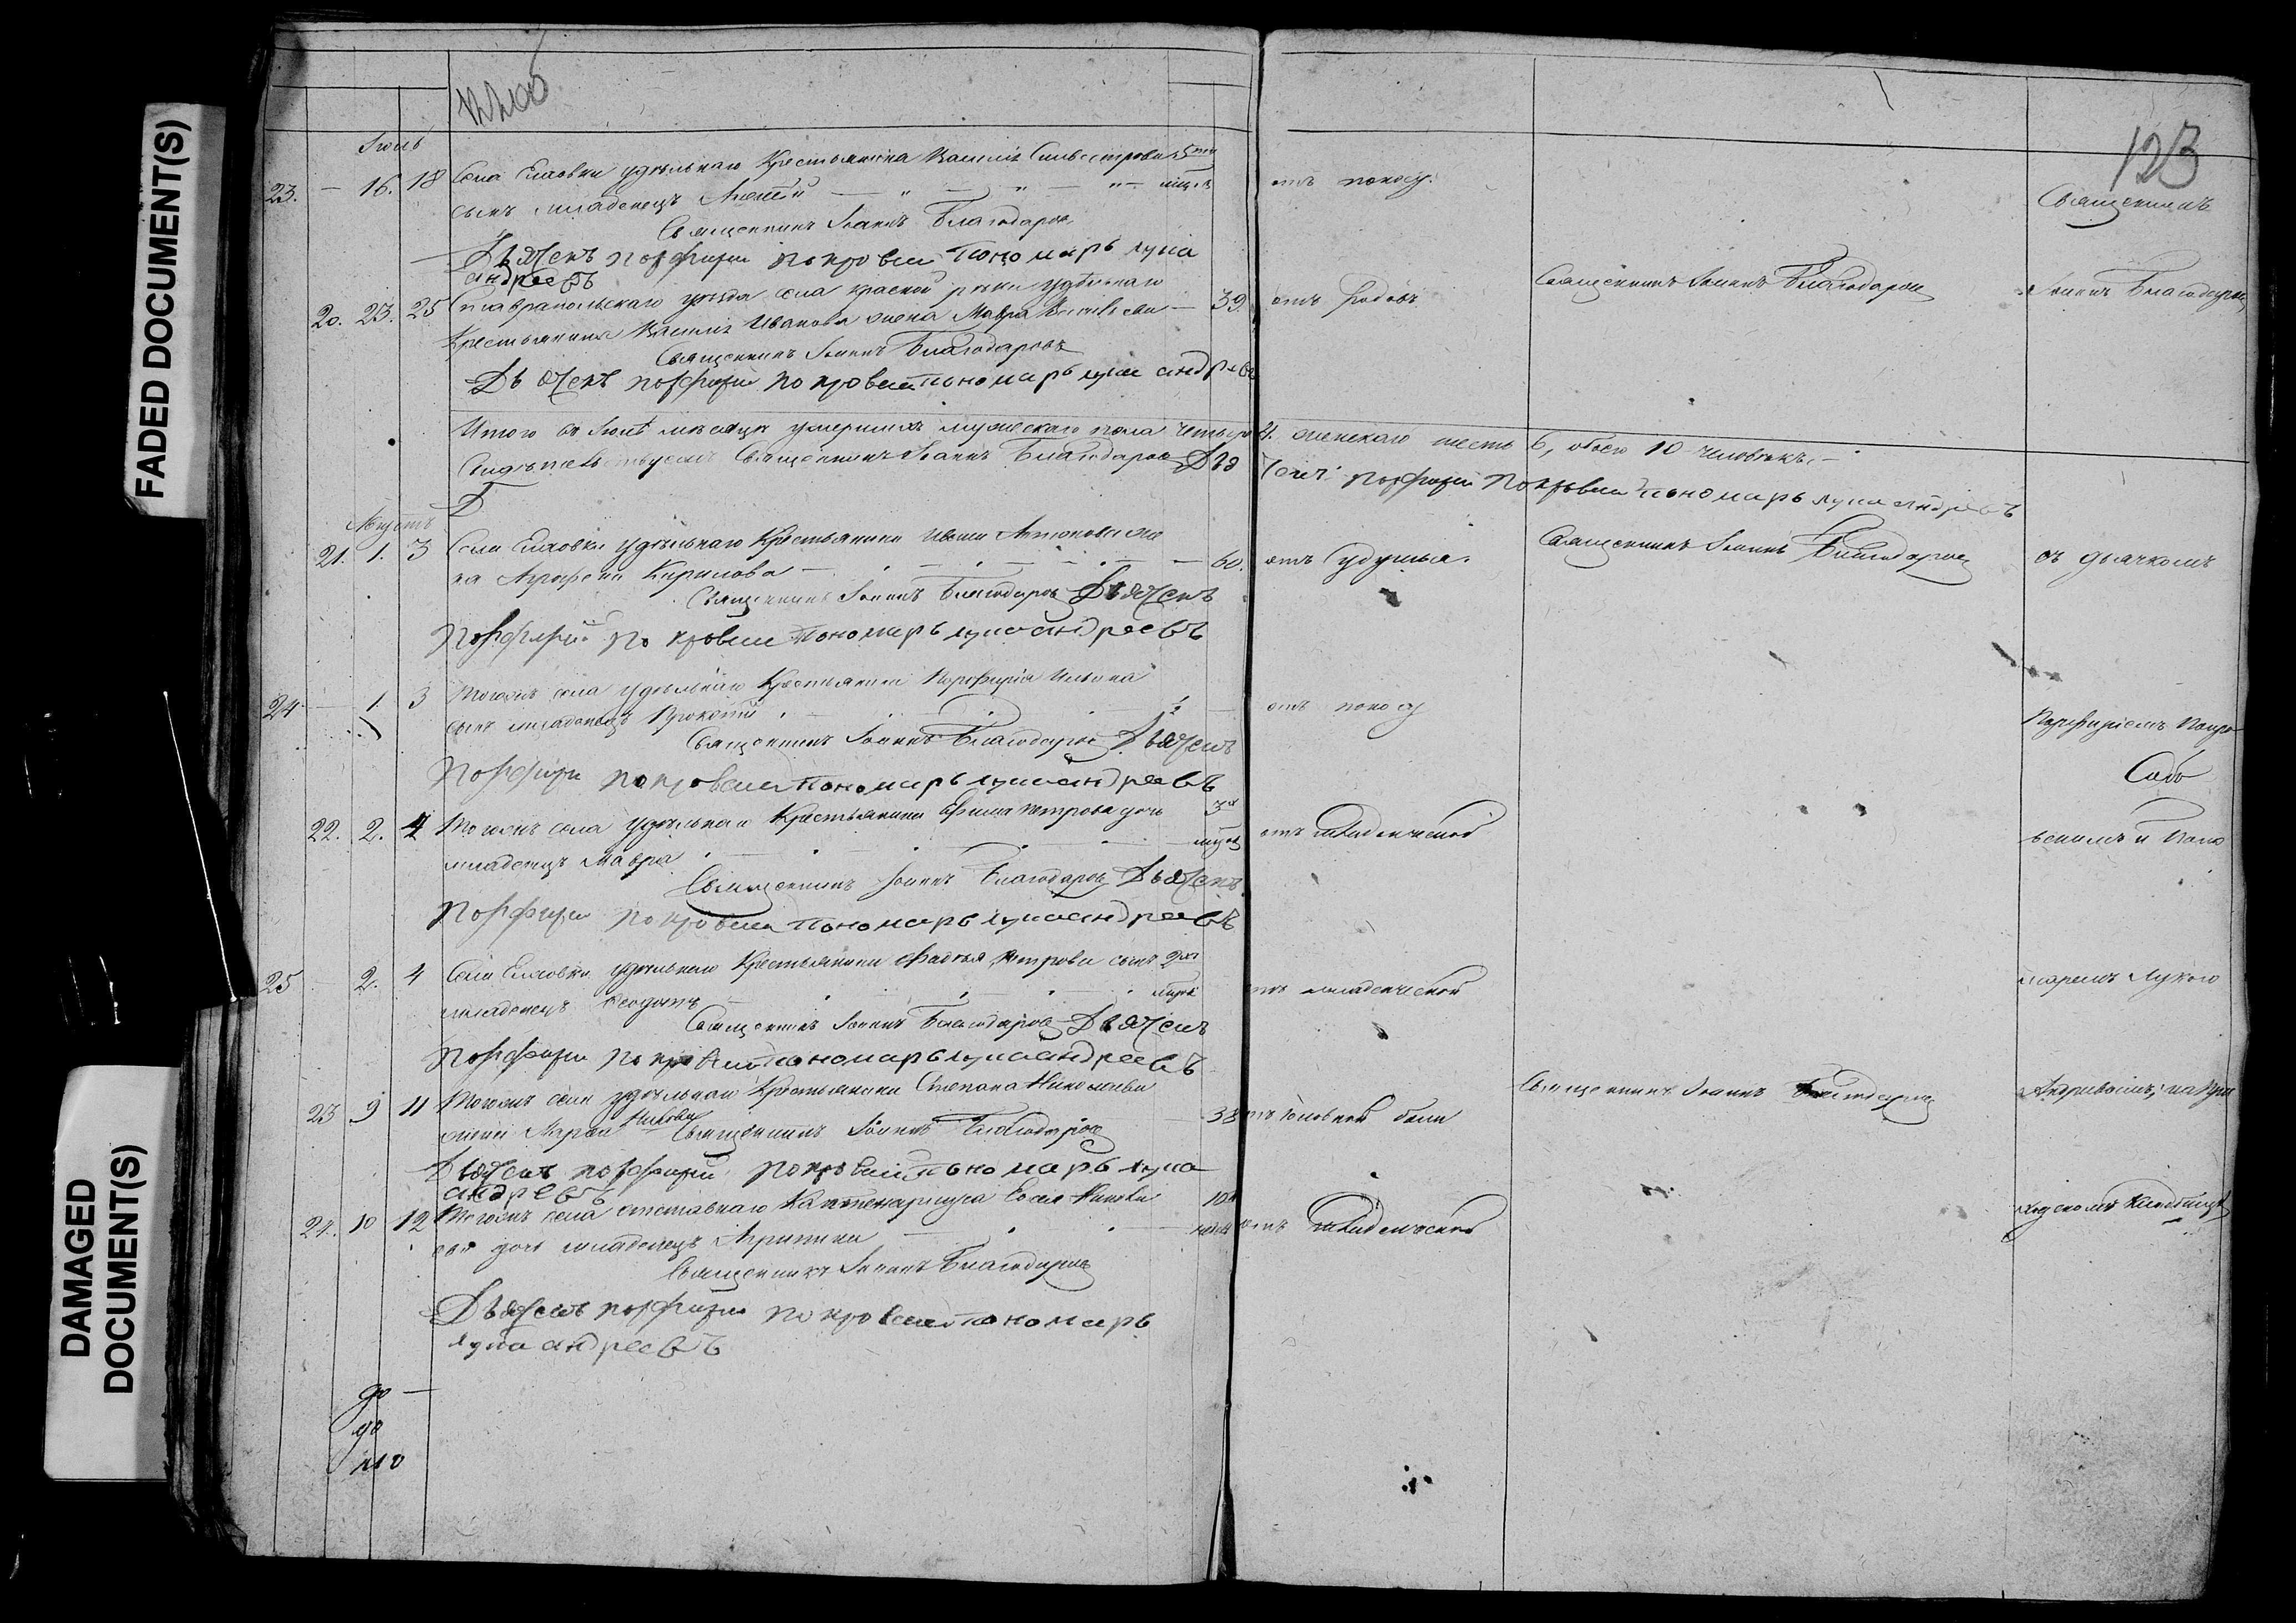 FADED DOCUMENT(S)
DAMAGED DOCUMENT(S)
122об
123
Июль
23. — 16. 18 Села Елховки удѣльнаго Крестьянина Василiя Сильвестрова 5ти
сынъ младенецъ Алексѣй — " — " — " — отъ поносу.
Священникъ Iоаннъ Благодаровъ
Дьячекъ порфирiй покровскiй пономарь лука
андреевъ
20. 23. 25 Ставрапольскаго уѣзда села красной рѣки удѣльнаго
Крестьянина Василiя Иванова жена Мавра Васильева — 39. отъ родовъ Священникъ Iоаннъ Благодаровъ
Священникъ Iоаннъ Благодаровъ
Дьячекъ порфирiй покровскiй пономарь лука андреевъ
Итого въ Iюлѣ мѣсяцѣ умершихъ мужескаго пола четыре 4. женскаго шесть 6, обоего 10 человѣкъ. —
Свидѣтельствуемъ Священникъ Iоаннъ Благодаровъ Дья
чекъ порфирiй Покровскiй пономарь лука андреевъ
Августъ
21. 1. 3 Села Елховки удѣльнаго Крестьянина Ивана Антонова же
на Аграфена Кирилова — 60. отъ Удушья. Священникъ Iоаннъ Благодаровъ
Священникъ Iоаннъ Благодаровъ Дьячекъ
Порфирiй покровскiй пономарь лука андреевъ
24 — 1. 3 Тогожъ села удѣльнаго Крестьянина Порфирiя Ильина
сынъ младенецъ Прокопiй — отъ поносу
Священникъ Iоаннъ Благодаровъ Дьячекъ
Порфирiй покровскiй пономарь лука андреевъ
22. 2. 4 Тогожъ села удѣльнаго Крестьянина Ефима Петрова дочь 3х
младенецъ Мавра — отъ младенческой
Священникъ Iоаннъ Благодаровъ Дьячекъ
Порфирiй покровскiй пономарь лука андреевъ
25 — 2. 4 Села Елховки удѣльнаго Крестьянина Фадѣя Петрова сынъ 2хъ
младенецъ Феодотъ — отъ младенческой
Священникъ Iоаннъ Благодаровъ Дьячекъ
Порфирiй покровскiй пономарь лука андреевъ
23 9 11 Тогожъ села удѣльнаго Крестьянина Степана Николаева
жена Марья — 33 отъ головной боли Священникъ Iоаннъ Благодаровъ
Священникъ Iоаннъ Благодаровъ
Дьячекъ порфирiй покровскiй пономарь лука
андреевъ
24. 10 12 Тогожъ села отставнаго
дочь младенецъ Агрипина — отъ младенческой
Священникъ Iоаннъ Благодаровъ
Дьячекъ порфирiй покровскiй пономарь
лука андреевъ
Священникъ
Iоаннъ Благодаровъ
съ дьячкомъ
Порфирiемъ Покро
вскимъ и Поно
маремъ Лукою
Андреевымъ, на При
ходскомъ Кладбищѣ